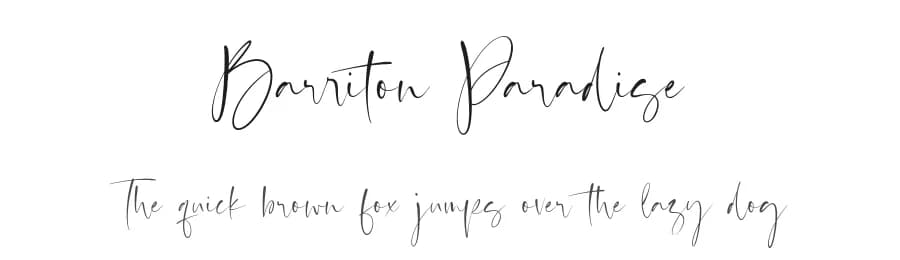 Barriton Paradise
The quick brown fox jumps over the lazy dog